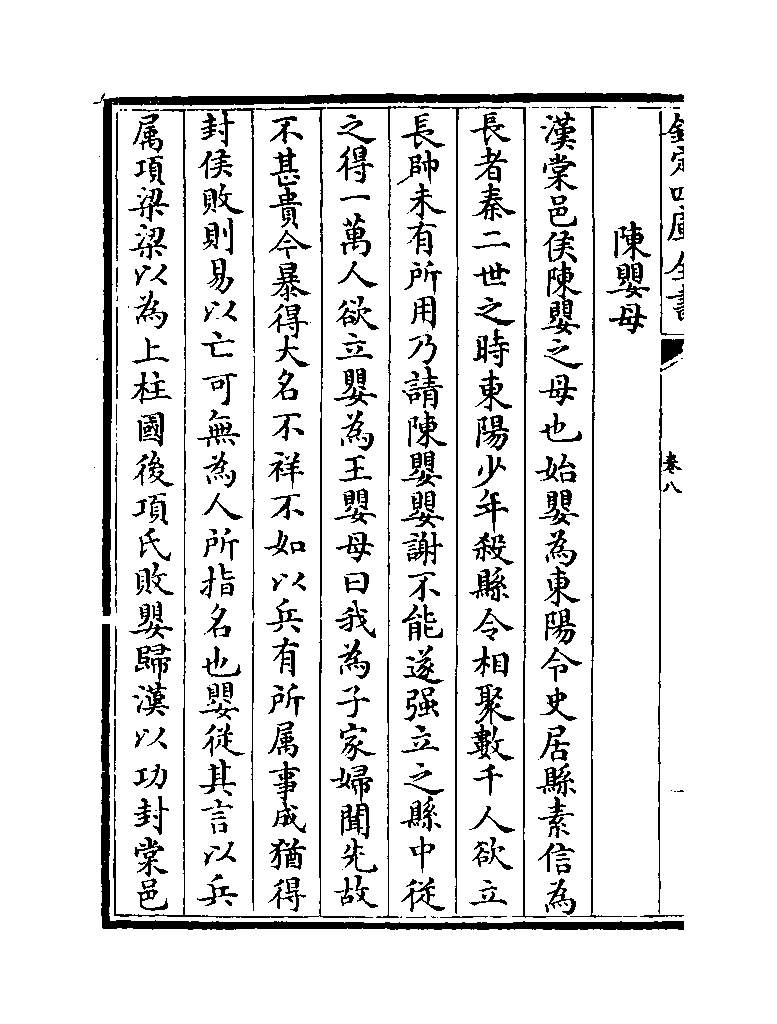 欽定四庫全書
卷八
陳嬰母
漢棠邑侯陳嬰之母也始嬰為東陽令史居縣素信為
長者秦二世之時東陽少年殺縣令相聚數千人欲立
長帥未有所用乃請陳嬰嬰謝不能遂强立之縣中從
之得一萬人欲立嬰為王嬰母曰我為子家婦聞先故
不甚貴今暴得大名不祥不如以兵有所属事成猶得
封侯敗則易以亡可無為人所指名也嬰從其言以兵
属項梁梁以為上柱國後項氏敗嬰歸漢以功封棠邑